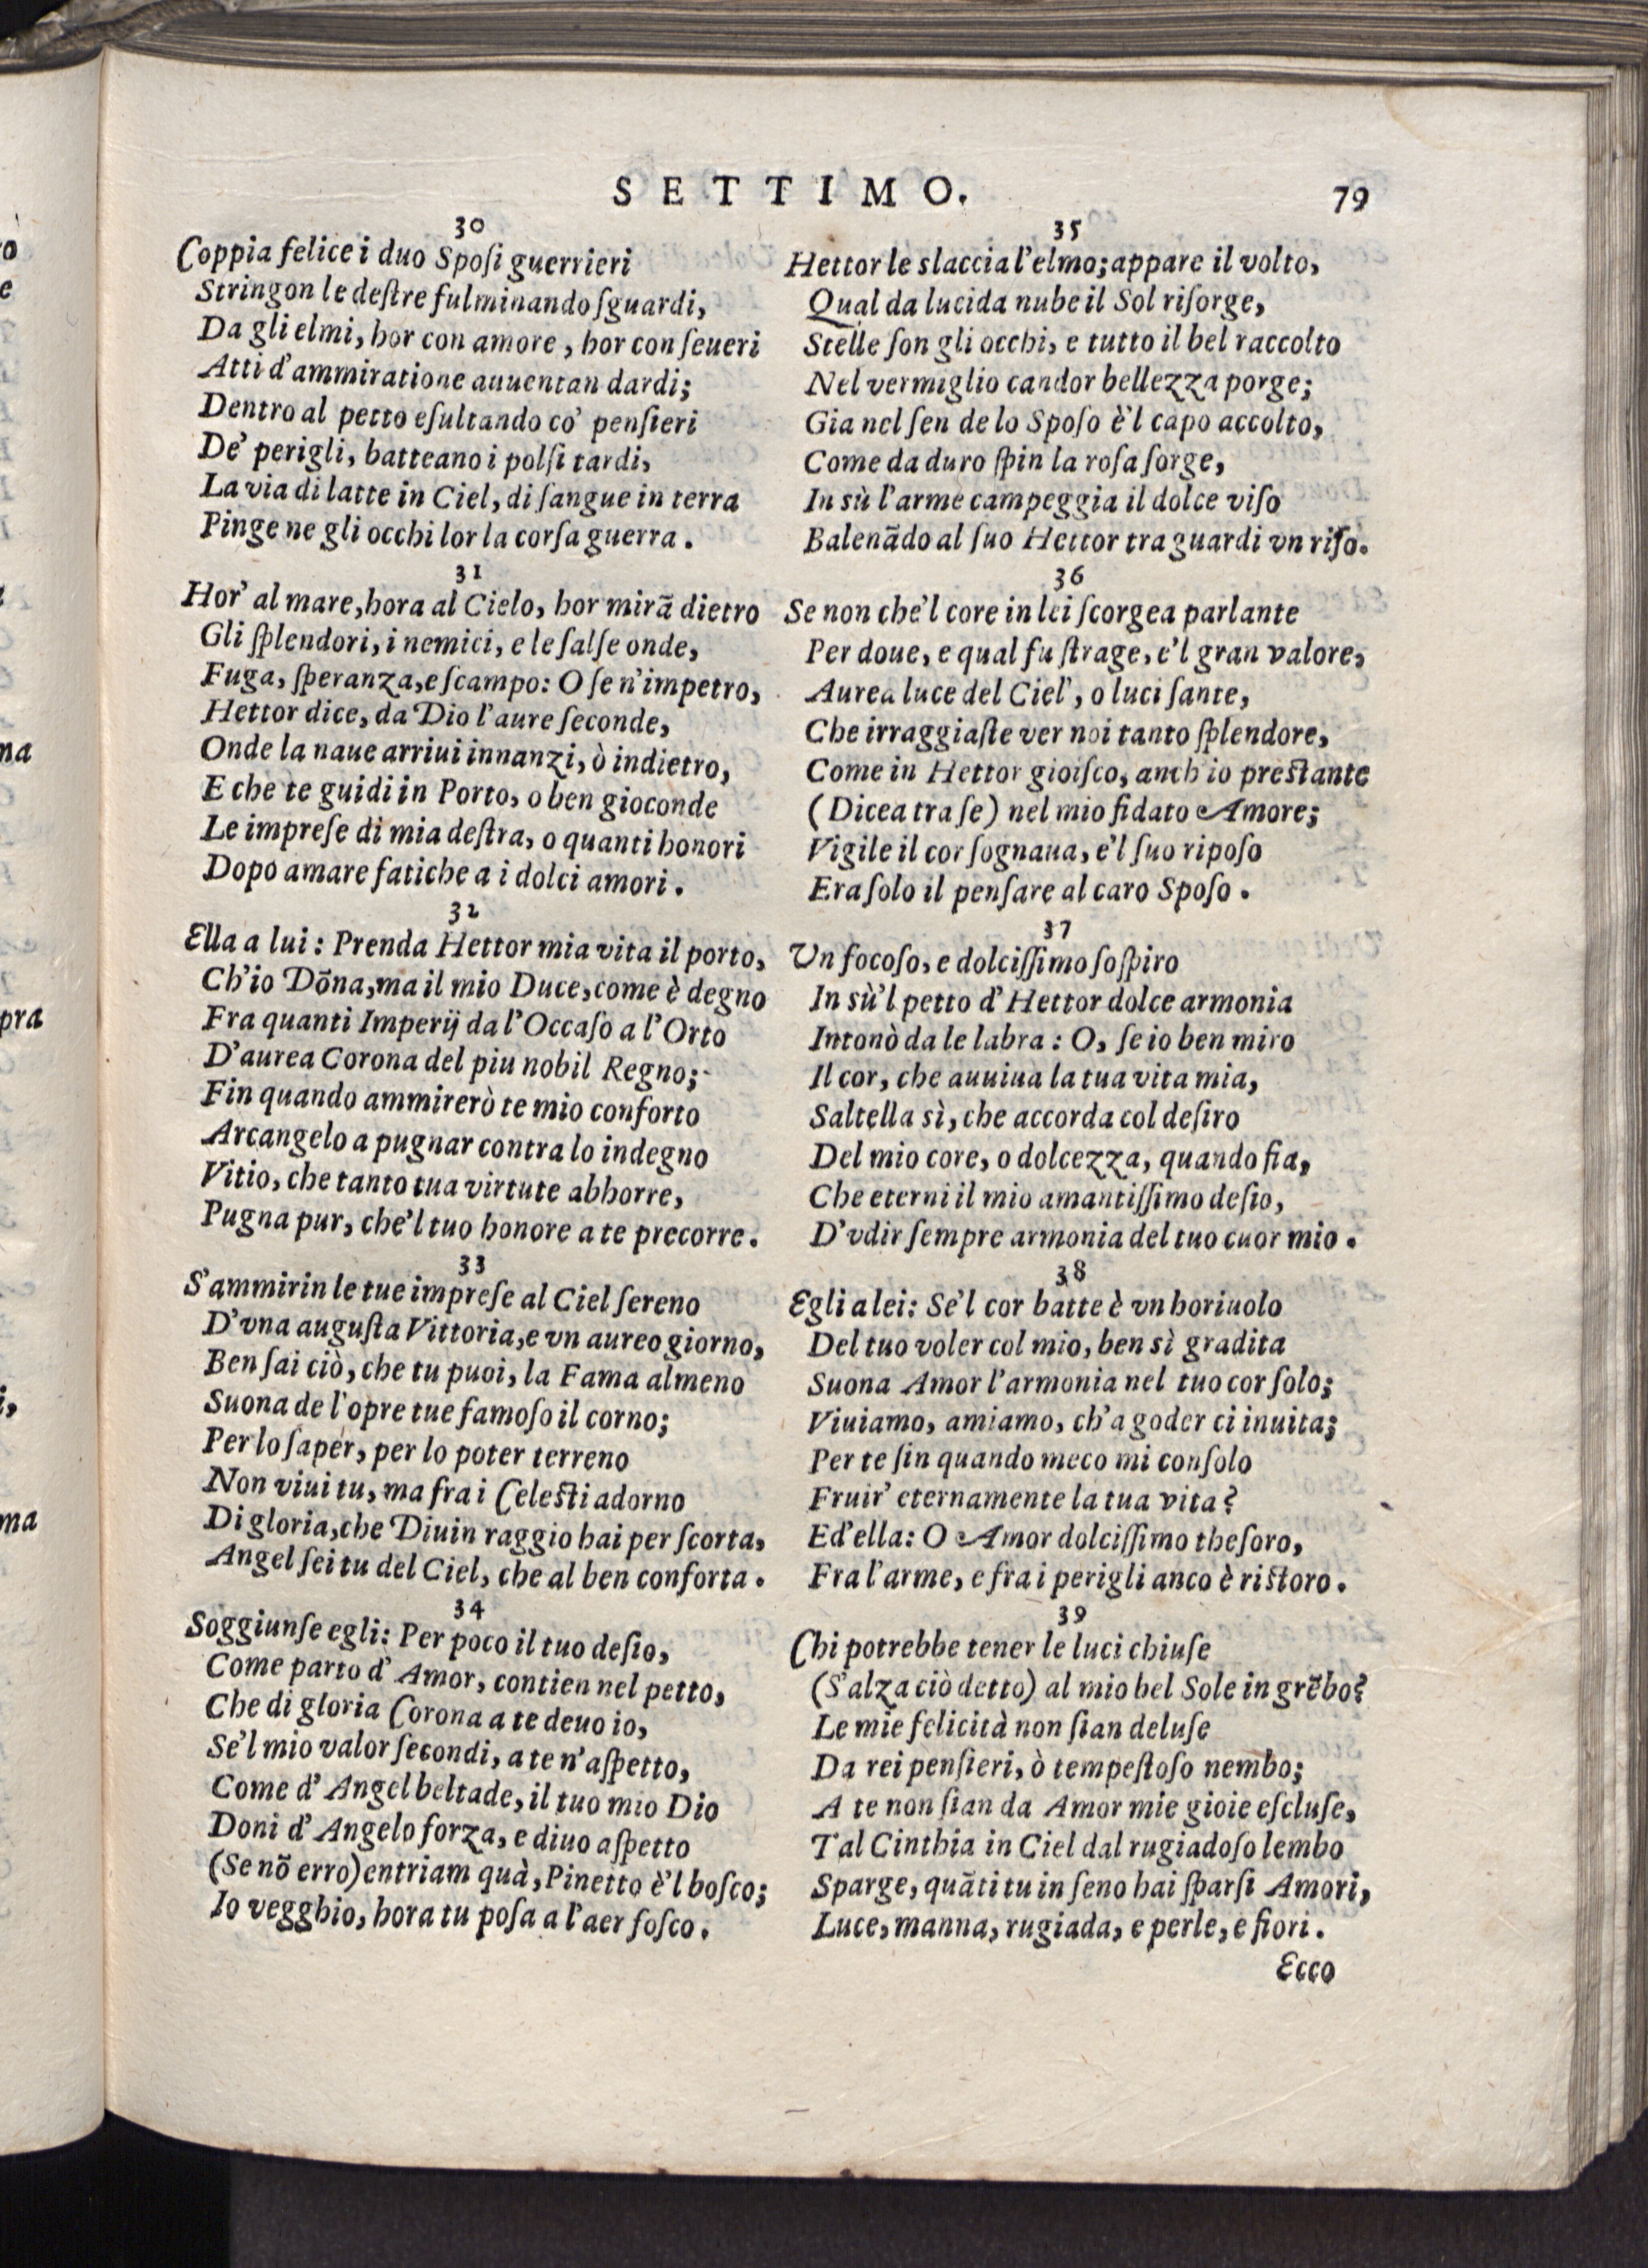 SETTIMO.
79
30
Coppia felice i duo Spoſi guerrieri
Stringon le deſtre fulminando ſguardi,
Da gli elmi, hor con amore, hor con ſeueri
Atti d'ammiratione auuentan dardi;
Dentro al petto eſultando co' penſieri
De' perigli, batteano i polſi tardi,
La via di latte in Ciel, di ſangue in terra
Pinge ne gli occhi lor la corſa guerra.
31
Hor' al mare, hora al Cielo, hor mirã dietro
Gli ſplendori, i nemici, e le ſalſe onde,
Fuga, ſperanza, e ſcampo: O ſe n'impetro,
Hettor dice, da Dio l'aure ſeconde,
Onde la naue arriui innanzi, ò indietro,
E che te guidi in Porto, o ben gioconde
Le impreſe di mia deſtra, o quanti honori
Dopo amare fatiche a i dolci amori.
32
Ella a lui: Prenda Hettor mia vita il porto,
Ch'io Dõna, ma il mio Duce, come è degno
Fra quanti Imperij da l'Occaſo a l'Orto
D'aurea Corona del piu nobil Regno;
Fin quando ammirerò te mio conforto
Arcangelo a pugnar contra lo indegno
Vitio, che tanto tua virtute abhorre,
Pugna pur, che'l tuo honore a te precorre.
33
S'ammirin le tue impreſe al Ciel ſereno
D'vna auguſta Vittoria, e vn aureo giorno,
Ben ſai ciò, che tu puoi, la Fama almeno
Suona de l'opre tue famoſo il corno;
Per lo ſaper, per lo poter terreno
Non viui tu, ma fra i Celeſti adorno
Di gloria, che Diuin raggio hai per ſcorta,
Angel ſei tu del Ciel, che al ben conforta.
34
Soggiunſe egli: Per poco il tuo deſio,
Come parto d'Amor, contien nel petto,
Che di gloria Corona a te deuo io,
Se'l mio valor ſecondi, a te n'aſpetto,
Come d'Angel beltade, il tuo mio Dio
Doni d'Angelo forza, e diuo aſpetto
(Se nõ erro) entriam quà, Pinetto è'l boſco;
Io vegghio, hora tu poſa a l'aer foſco.
35
Hettor le slaccia l'elmo; appare il volto,
Qual da lucida nube il Sol riſorge,
Stelle ſon gli occhi, e tutto il bel raccolto
Nel vermiglio candor bellezza porge;
Gia nel ſen de lo Spoſo è'l capo accolto,
Come da duro ſpin la roſa ſorge,
In sù l'arme campeggia il dolce viſo
Balenãdo al ſuo Hettor tra guardi vn riſo.
36
Se non che'l core in lei ſcorgea parlante
Per doue, e qual fu ſtrage, e'l gran valore,
Aurea luce del Ciel', o luci ſante,
Che irraggiaſte ver noi tanto ſplendore,
Come in Hettor gioiſco, anch'io preſtante
(Dicea tra ſe) nel mio fidato Amore;
Vigile il cor ſognaua, e'l ſuo ripoſo
Era ſolo il penſare al caro Spoſo.
37
Vn focoſo, e dolciſſimo ſoſpiro
In sù'l petto d'Hettor dolce armonia
Intonò da le labra: O, ſe io ben miro
Il cor, che auuiua la tua vita mia,
Saltella sì, che accorda col deſiro
Del mio core, o dolcezza, quando fia,
Che eterni il mio amantiſſimo deſio,
D'vdir ſempre armonia del tuo cuor mio.
38
Egli a lei: Se'l cor batte è vn horiuolo
Del tuo voler col mio, ben sì gradita
Suona Amor l'armonia nel tuo cor ſolo;
Viuiamo, amiamo, ch'a goder ci inuita;
Per te ſin quando meco mi conſolo
Fruir' eternamente la tua vita?
Ed'ella: O Amor dolciſſimo theſoro,
Fra l'arme, e fra i perigli anco è riſtoro.
39
Chi potrebbe tener le luci chiuſe
(S'alza ciò detto) al mio bel Sole in grẽbo?
Le mie felicità non ſian deluſe
Da rei penſieri, ò tempeſtoſo nembo;
A te non ſian da Amor mie gioie eſcluſe,
Tal Cinthia in Ciel dal rugiadoſo lembo
Sparge, quãti tu in ſeno hai ſparſi Amori,
Luce, manna, rugiada, e perle, e fiori.
Ecco